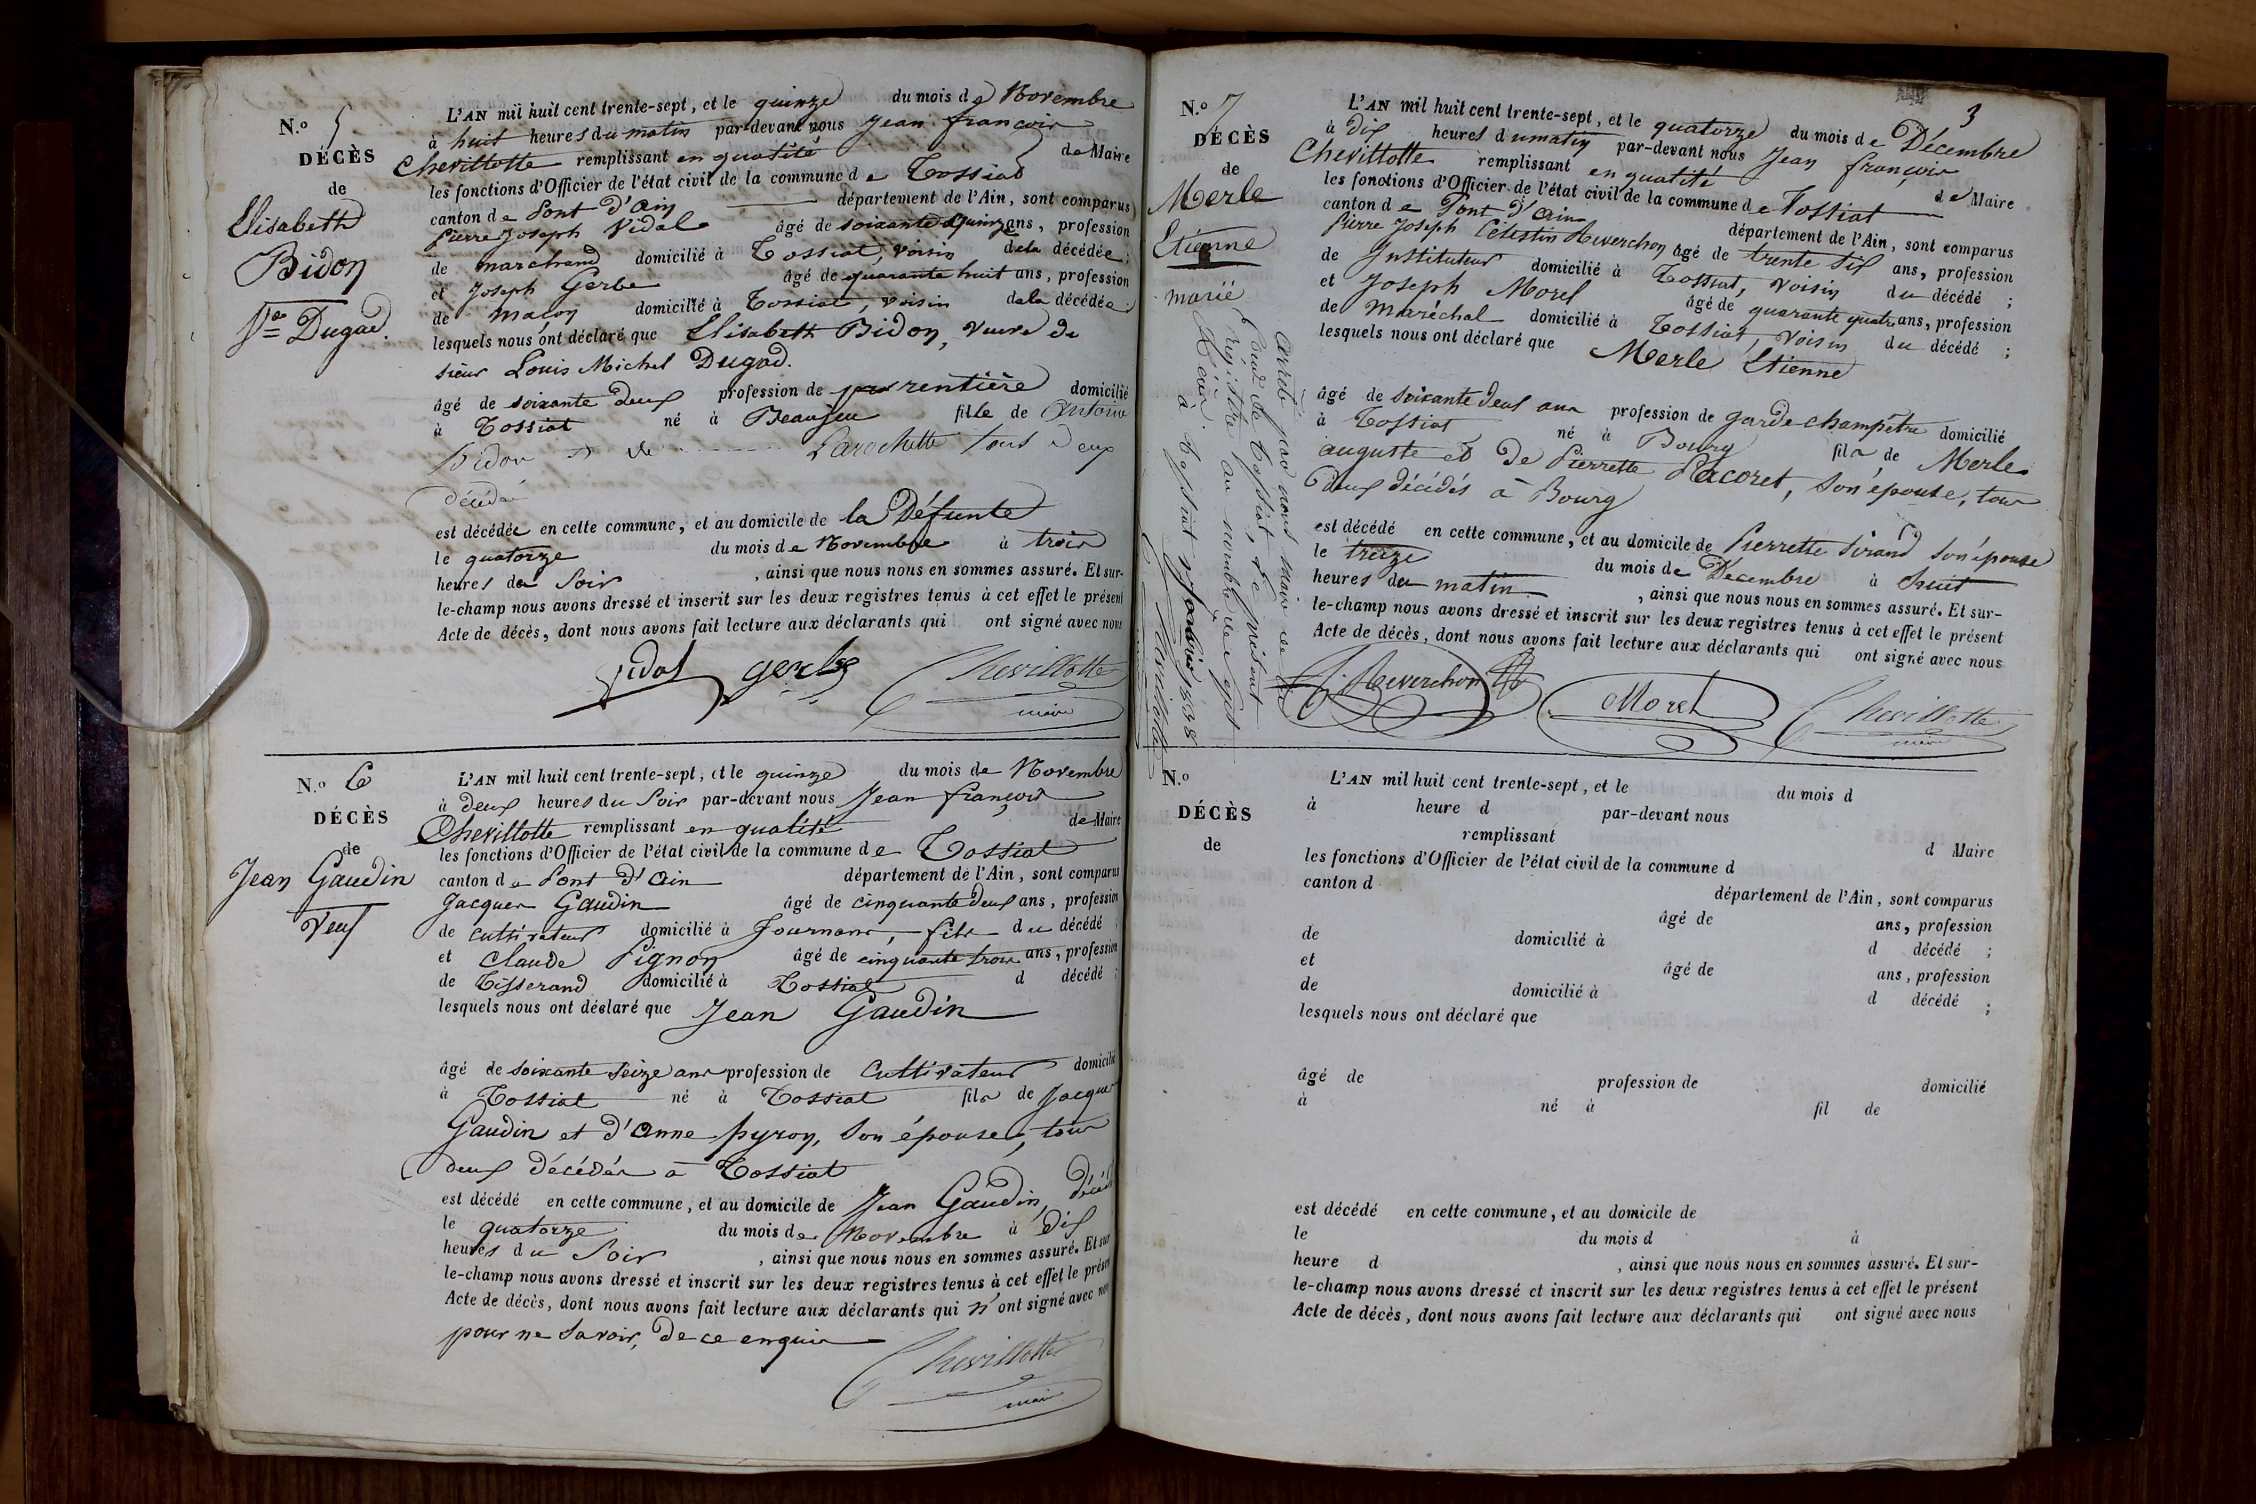 N.o 5
DÉCÈS
de
Elisabeth
Bidon
Ve Dugad.
L'AN mil huit cent trente-sept, et le quinze du mois de Novembre
à huit heures du matin par-devant nous Jean françois
Chevillotte remplissant en qualité de Maire
les fonctions d'Officier de l'état civil de la commune de Tossiat
canton de Pont d'Ain département de l'Ain, sont comparus
Pierre Joseph Vidal âgé de soixante quinze ans, profession
de marchand domicilié à Tossiat, voisin de la décédée;
et Joseph Gerbe âgé de quarante huit ans, profession
de maçon domicilié à Tossiat, voisin de la décédée;
lesquels nous ont déclaré que Elisabeth Bidon, veuve de
sieur Louis Michel Dugad.
âgé de soixante deux profession de rentière domicilié
à Tossiat né à Beaujeu fille de Antoine
Bidon et de Larochette tous deux
décédés
est décédée en cette commune, et au domicile de la Défunte
le quatorze du mois de Novembre à trois
heures du soir, ainsi que nous nous en sommes assuré. Et sur-
le-champ nous avons dressé et inscrit sur les deux registres tenus à cet effet le présent
Acte de décès, dont nous avons fait lecture aux déclarants qui ont signé avec nous
Vidal gerbe Chevillotte
maire
N.o 6
DÉCÈS
de
Jean Gaudin
Veuf
L'AN mil huit cent trente-sept, et le quinze du mois de Novembre
à deux heures du soir par-devant nous Jean françois
Chevillotte remplissant en qualité de Maire
les fonctions d'Officier de l'état civil de la commune de Tossiat
canton de Pont d'Ain département de l'Ain, sont comparus
Jacques Gaudin âgé de cinquante deux ans, profession
de cultivateur domicilié à Journans, fils du décédé;
et Claude Pignon âgé de cinquante trois ans, profession
de Tisserand domicilié à Tossiat d décédé;
lesquels nous ont déclaré que Jean Gaudin
âgé de soixante seize ans profession de cultivateur domicilié
à Tossiat né à Tossiat fils de Jacques
Gaudin et d'anne pyron, son épouse, tous
deux décédés à Tossiat
est décédé en cette commune, et au domicile de Jean Gaudin, décédé
le quatorze du mois de Novembre à dix
heures du soir, ainsi que nous nous en sommes assuré. Et sur
le-champ nous avons dressé et inscrit sur les deux registres tenus à cet effet le présent
Acte de décès, dont nous avons fait lecture aux déclarants qui n'ont signé avec nous
pour ne savoir, de ce enquis
Chevillotte
maire
3
N.o 7
DÉCÈS
de
Merle
Etienne
marié
L'AN mil huit cent trente-sept, et le quatorze du mois de Décembre
à dix heures du matin par-devant nous Jean françois
Chevillotte remplissant en qualité de Maire
les fonctions d'Officier de l'état civil de la commune de Tossiat
canton de Pont d'Ain département de l'Ain, sont comparus
Pierre Joseph Célestin Reverchon âgé de trente six ans, profession
de Instituteur domicilié à Tossiat, voisin du décédé;
et Joseph Morel âgé de quarante quatre ans, profession
de maréchal domicilié à Tossiat, voisin du décédé;
lesquels nous ont déclaré que Merle Etienne
âgé de soixante deux ans profession de garde champêtre domicilié
à Tossiat né à Bourg fils de Merle
auguste et de Pierrette Pacoret, son épouse, tous
deux décédés à Bourg
est décédé en cette commune, et au domicile de Pierrette Sirand son épouse
le treize du mois de Décembre à huit
heures du matin, ainsi que nous nous en sommes assuré. Et sur-
le-champ nous avons dressé et inscrit sur les deux registres tenus à cet effet le présent
Acte de décès, dont nous avons fait lecture aux déclarants qui ont signé avec nous
Reverchon Morel Chevillotte
maire
arrêté par nous maire de la
Commune de Tossiat, le présent
registre au nombre de sept
décès.
à Tossiat 1er Janvier 1838
Chevillotte
N.o
DÉCÈS
de
L'AN mil huit cent trente-sept, et le du mois d
à heure d par-devant nous
remplissant d Maire
les fonctions d'Officier de l'état civil de la commune d
canton d département de l'Ain, sont comparus
âgé de ans, profession
de domicilié à d décédé;
et âgé de ans, profession
de domicilié à d décédé;
lesquels nous ont déclaré que
âgé de profession de domicilié
à né à fil de
est décédé en cette commune, et au domicile de
le du mois d à
heure d, ainsi que nous nous en sommes assuré. Et sur-
le-champ nous avons dressé et inscrit sur les deux registres tenus à cet effet le présent
Acte de décès, dont nous avons fait lecture aux déclarants qui ont signé avec nous